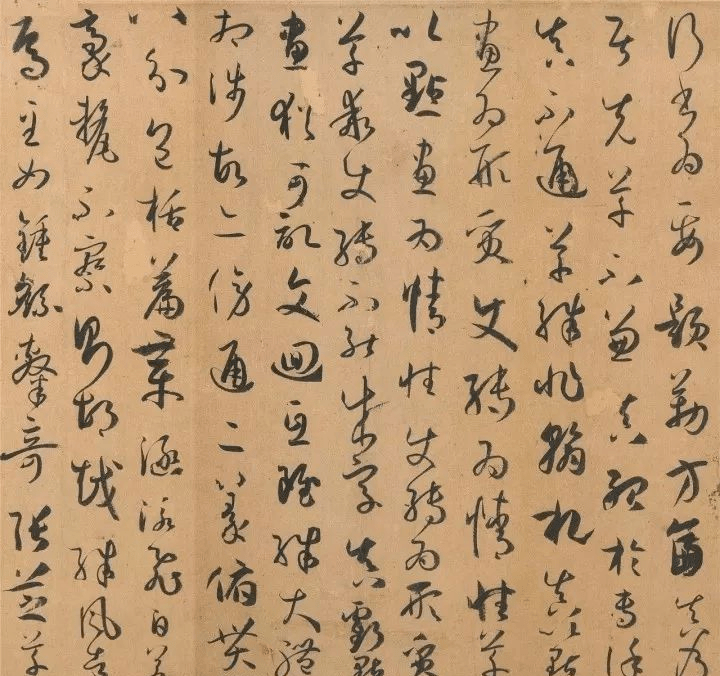 行書為要題勒方畐真乃
居先草不兼真殆於專謹
真不通草殊非翰札真以點
畫為形質使轉為情性草
以點畫為情性使轉為形質
草乖使轉不能成字真虧點
畫猶可記文迴互雖殊大體
相涉故亦傍通二篆俯貫
八分包括篇章涵泳飛白若
豪釐不察則胡越殊風者
焉至如鍾繇隸奇張芝草